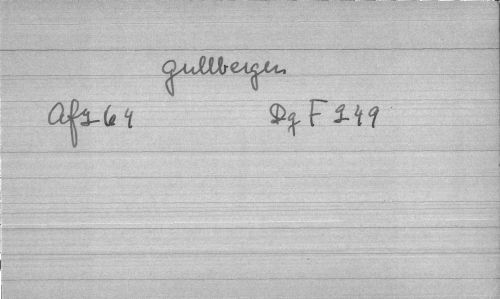 gullbergen
Af 2 64 Dg F 249